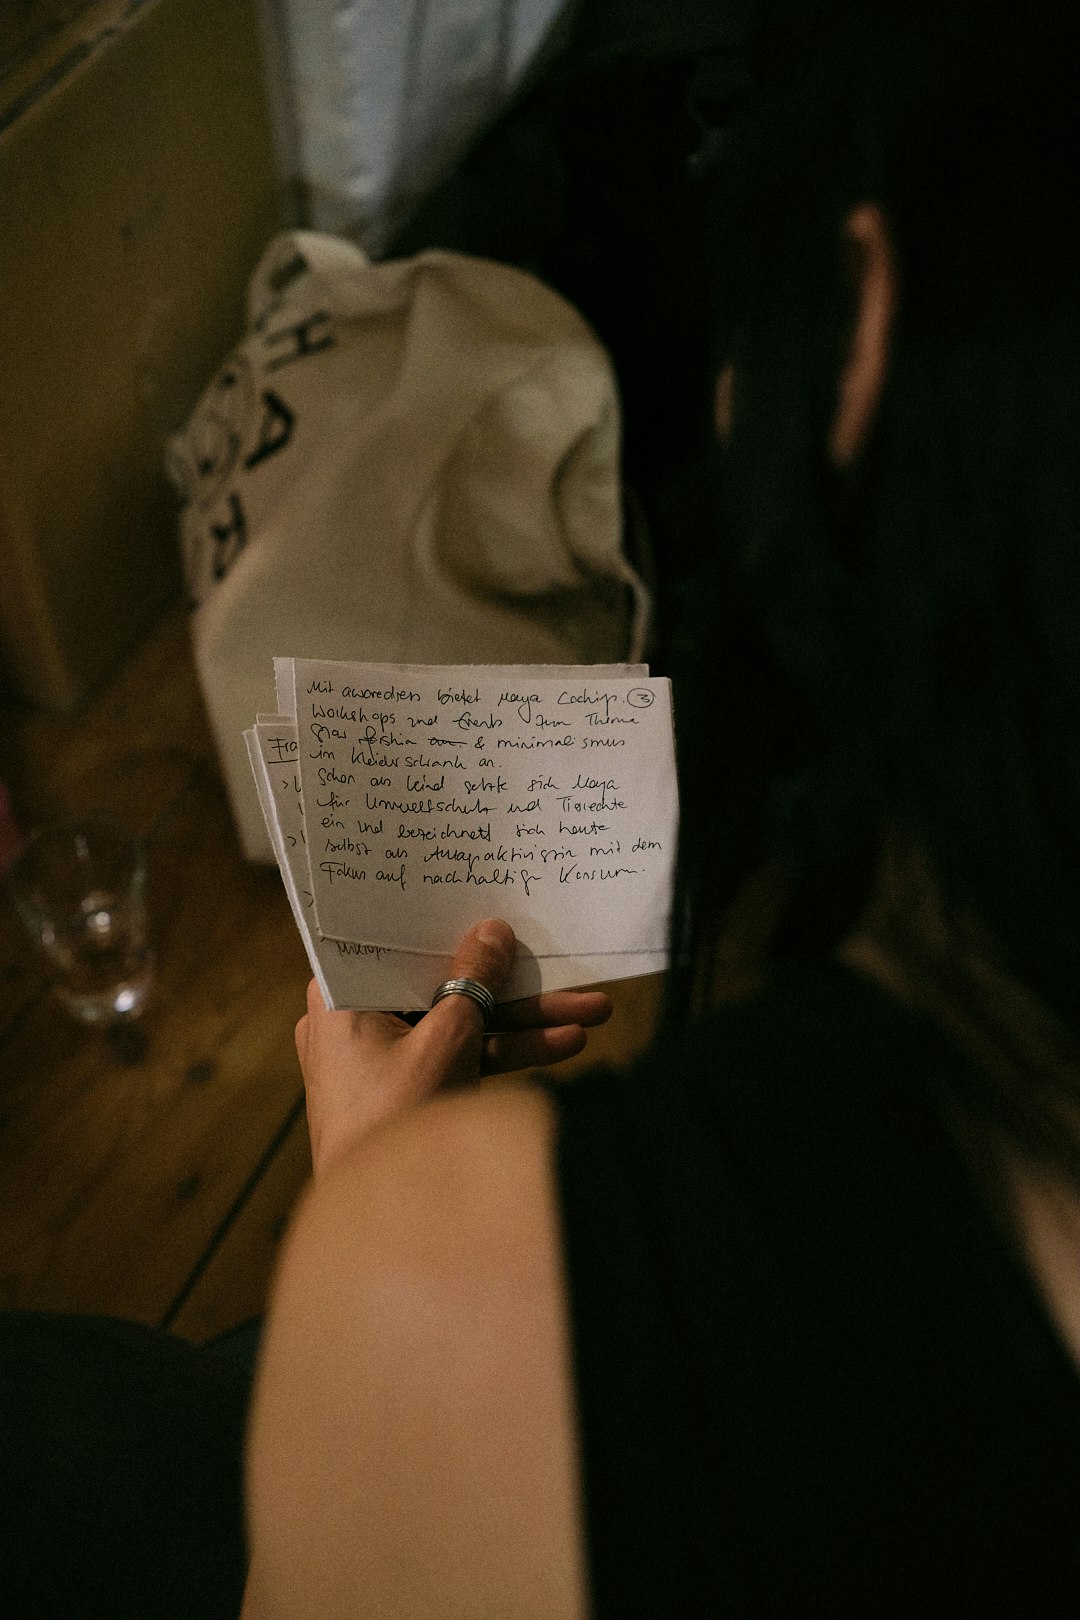 H
A
Mit awaredress bietet Maya Coachings, ③
Workshops und Events zum Thema
Slow fashion & minimalismus
im Kleiderschrank an.
Schon als Kind setzte sich Maya
für Umweltschutz und Tierrechte
ein und bezeichnett sich heute
selbst als Alltagsaktivistin mit dem
Fokus auf nachhaltigen Konsum.
Fra